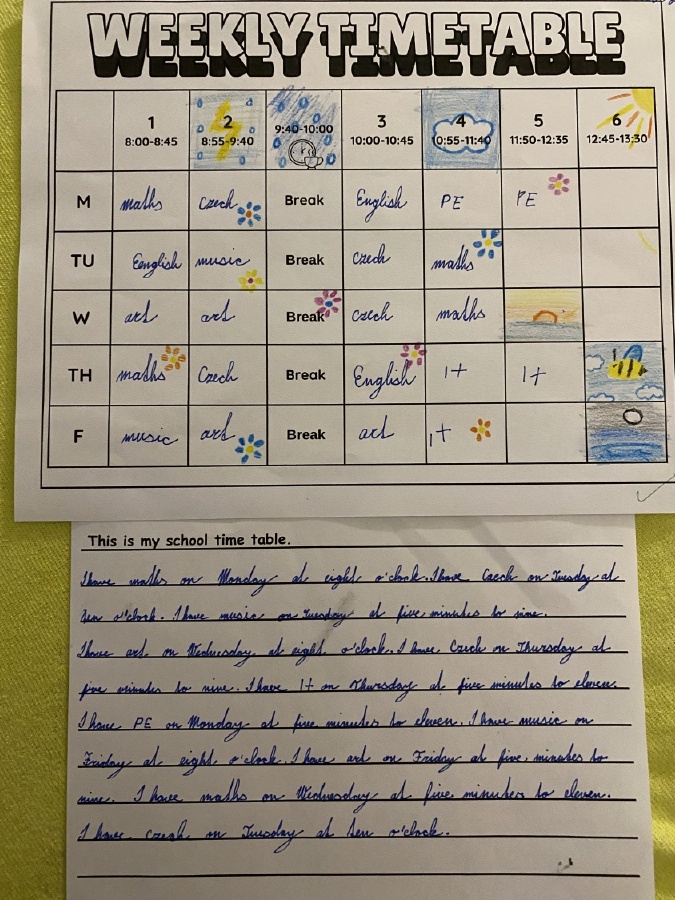 WEEKLY TIMETABLE
1 2 3 4 5 6
8:00-8:45 8:55-9:40 9:40-10:00 10:00-10:45 10:55-11:40 11:50-12:35 12:45-13:30
M maths Czech Break English PE PE
TU Eenglish music Break Czech maths
W art art Break Czech maths
TH maths Czech Break English It It
F music art Break art It
This is my school time table.
I have maths on Monday at eight o'clock. I have Czech on Tuesday at
ten o'clock. I have music on Tuesday at five minutes to nine.
I have art on Wednesday at eight o'clock. I have Czech on Thursday at
five minutes to nine. I have It on Thursday at five minutes to eleven.
I have PE on Monday at five minutes to eleven. I have music on
Friday at eight o'clock. I have art on Friday at five minutes to
nine. I have maths on Wednesday at five minutes to eleven.
I have Czech on Tuesday at ten o'clock.